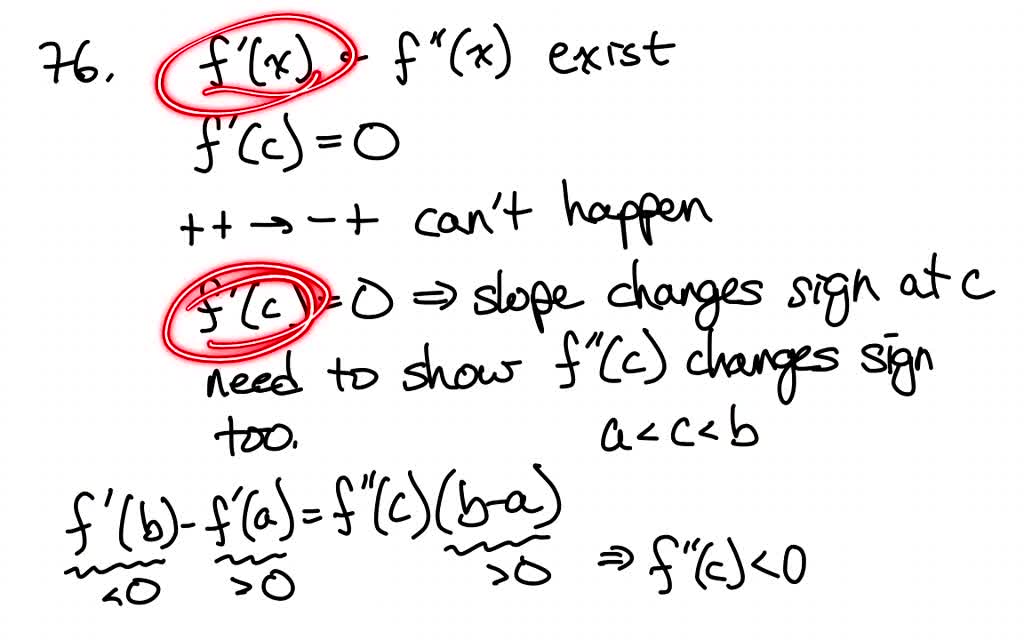 76. f'(x) - f"(x) exist
f'(c) = 0
++ → -+ can't happen
f'(c) = 0 ⇒ slope changes sign at c
need to show f"(c) changes sign
too. a < c < b
f'(b) - f'(a) = f"(c) (b-a)
<0 >0 >0 ⇒ f"(c) < 0